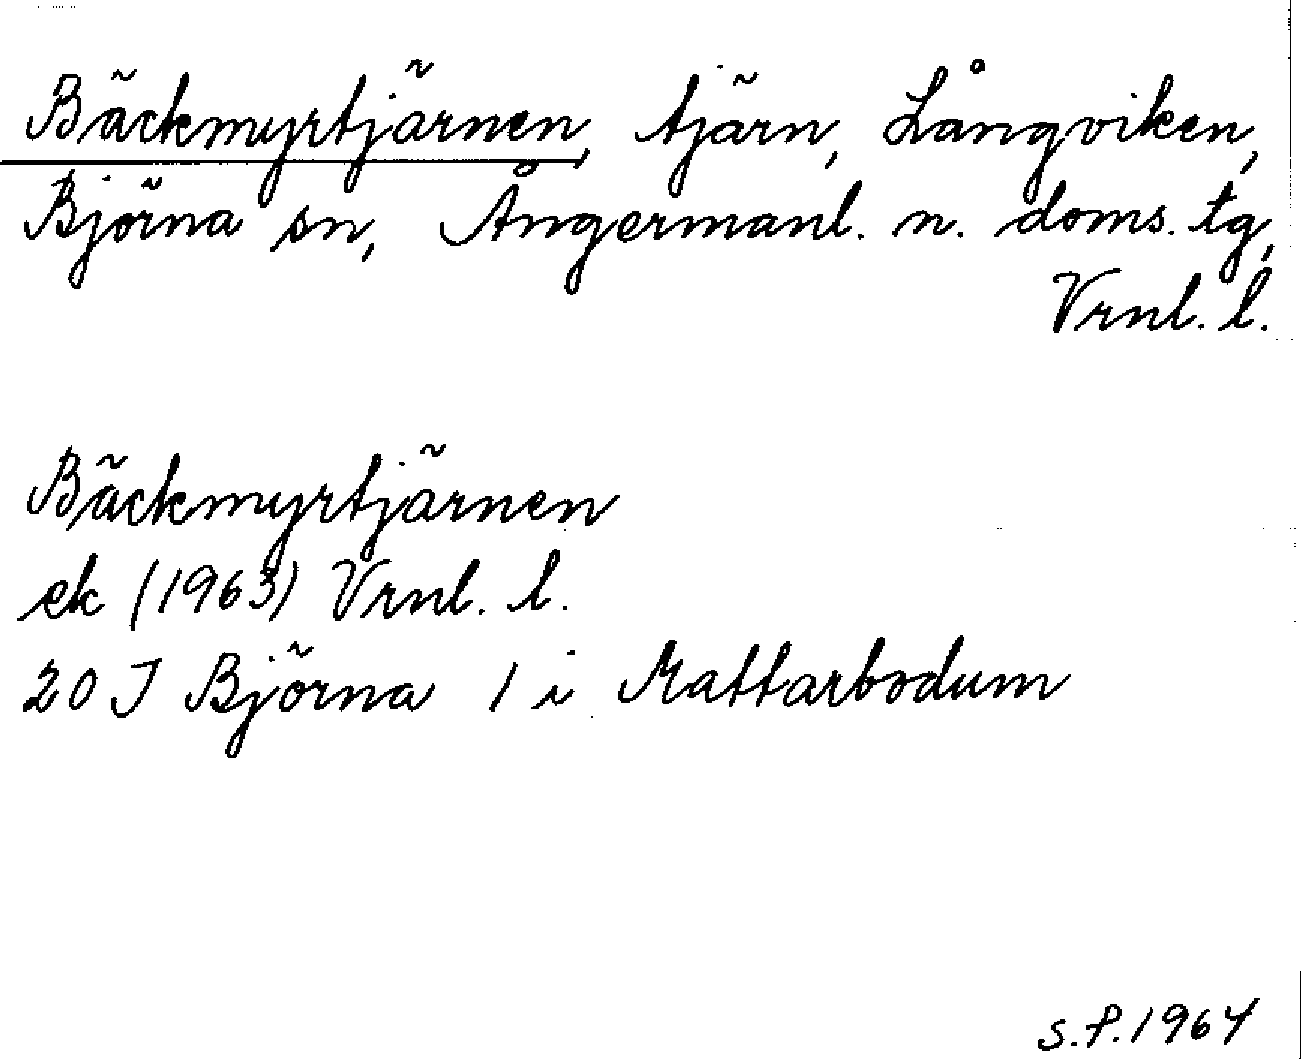 Bäckmyrtjärnen, tjärn, Långviken,
Björna sn, Ångermanl. n. doms. tg,
Vrnl. l.
Bäckmyrtjärnen
ek (1963) Vrnl. l.
20 J Björna 1 i Mattarbodum
S.P. 1964